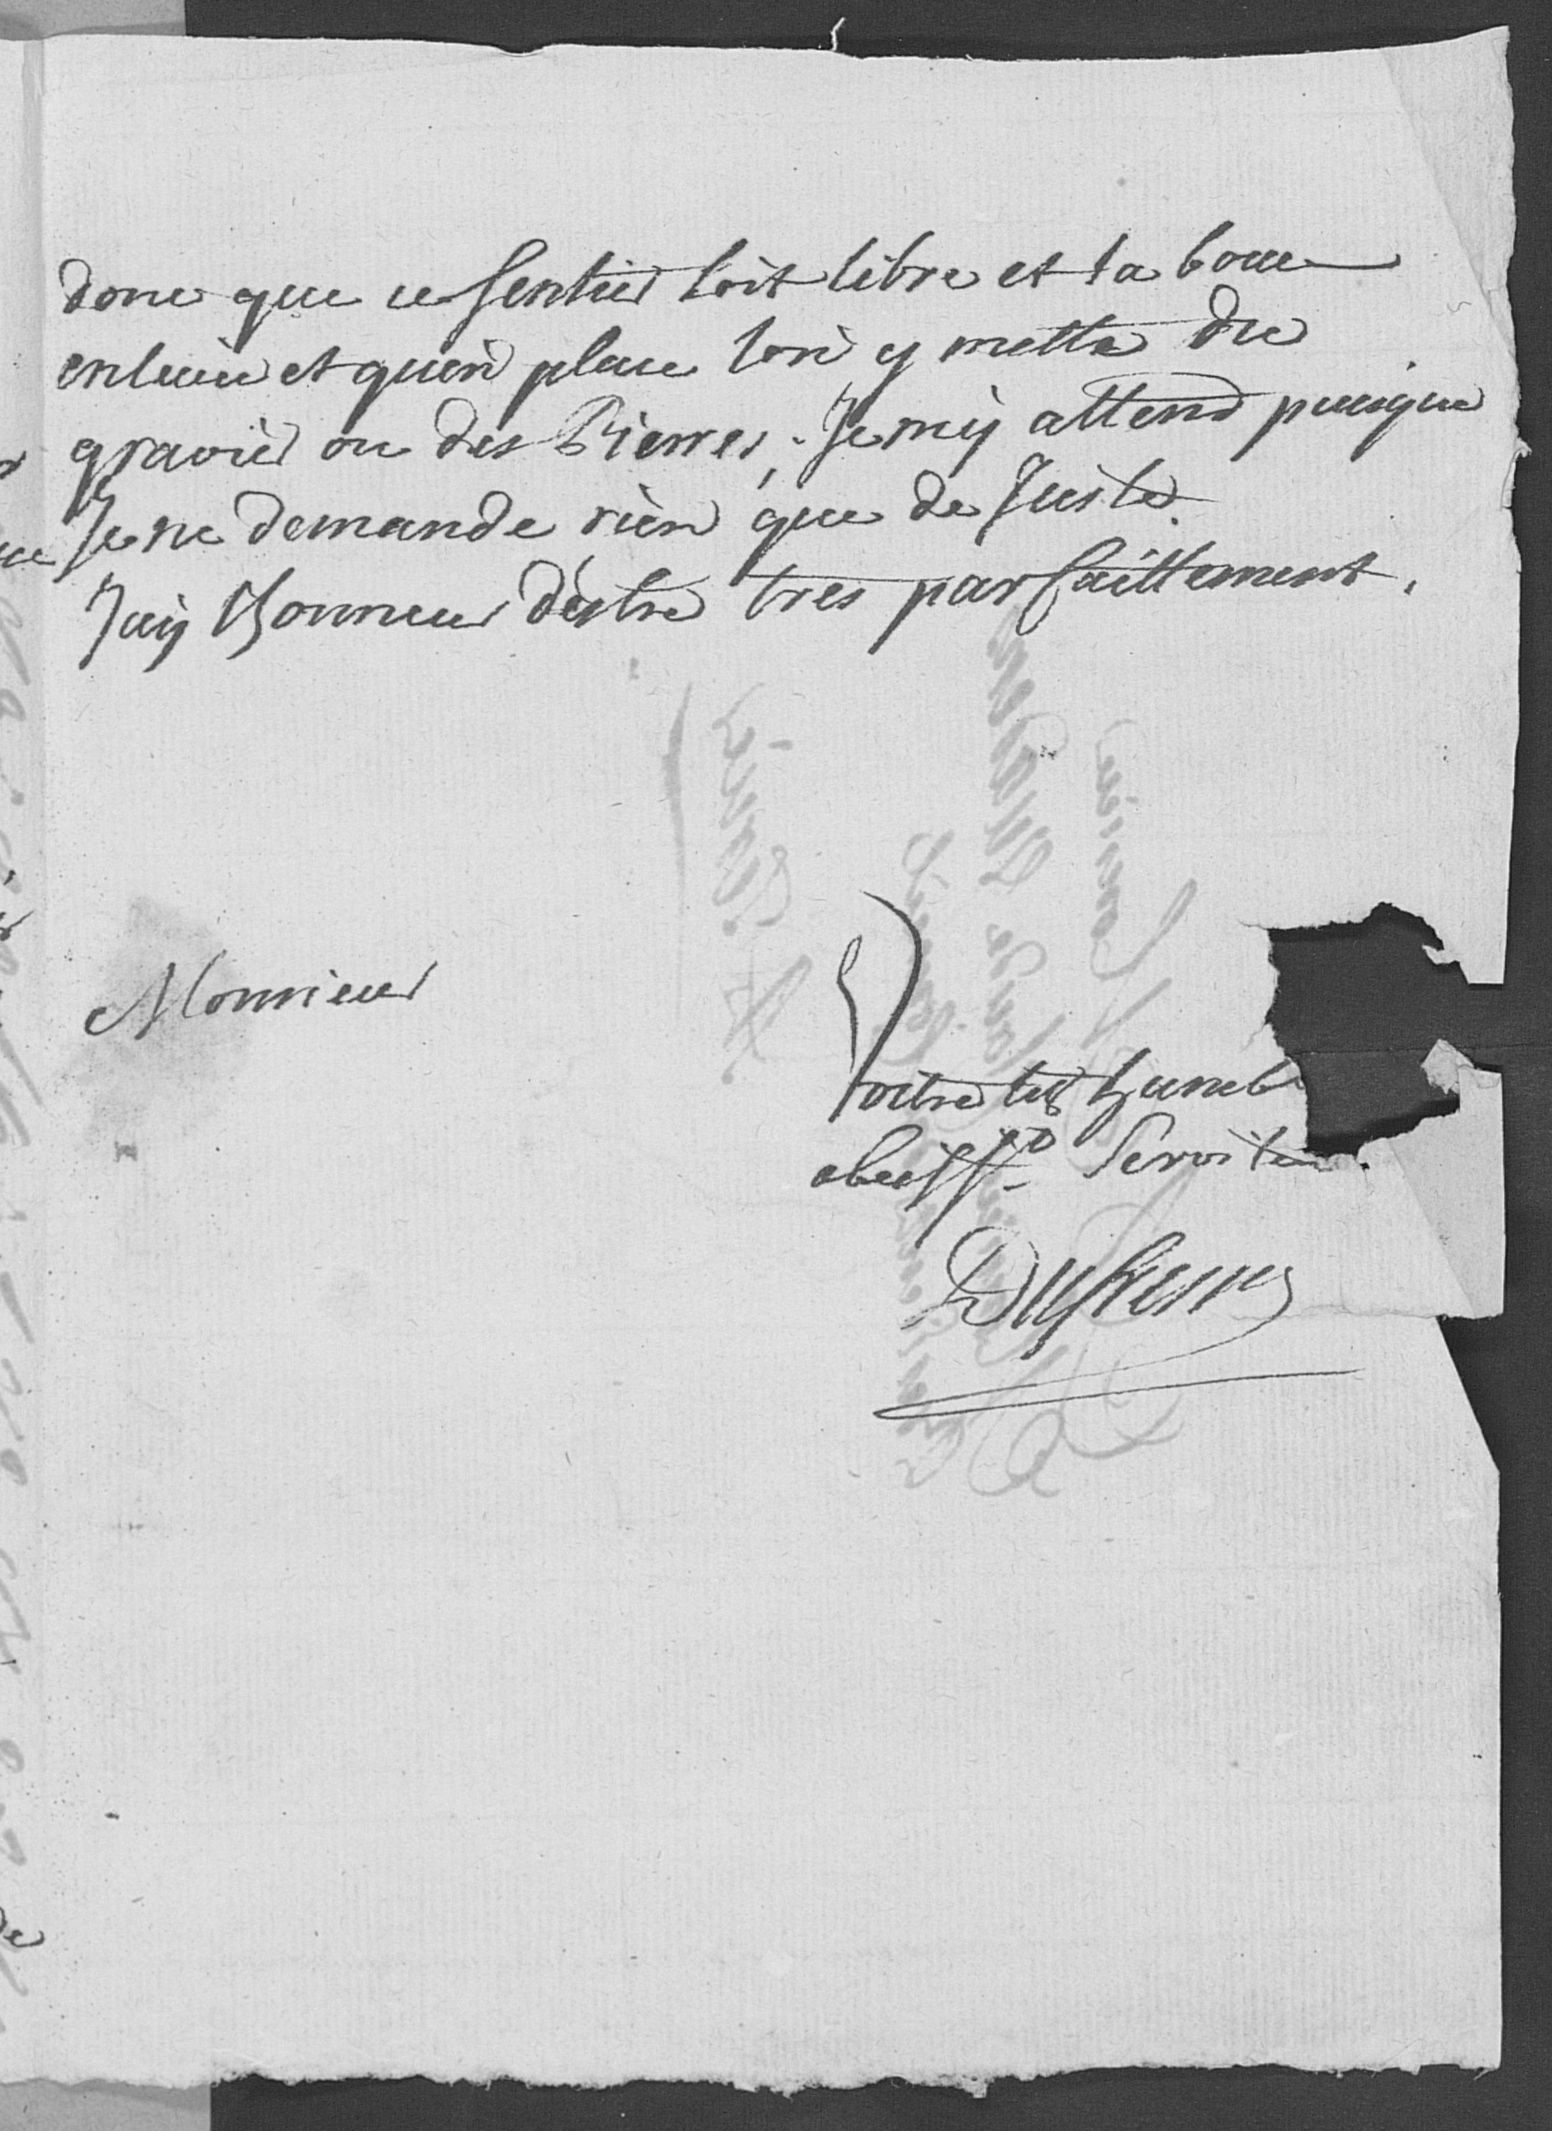 donc que ce sentier soit libre et la boue
enlevée et quen place lon y mette du
gravier ou des Pierres, Je my attend puisque
Je ne demande rien que de Juste.
Jay lhonneur d'estre tres parfaittement,
Monsieur
Votre tres humb
obeiss. Serviteu
Dufresne